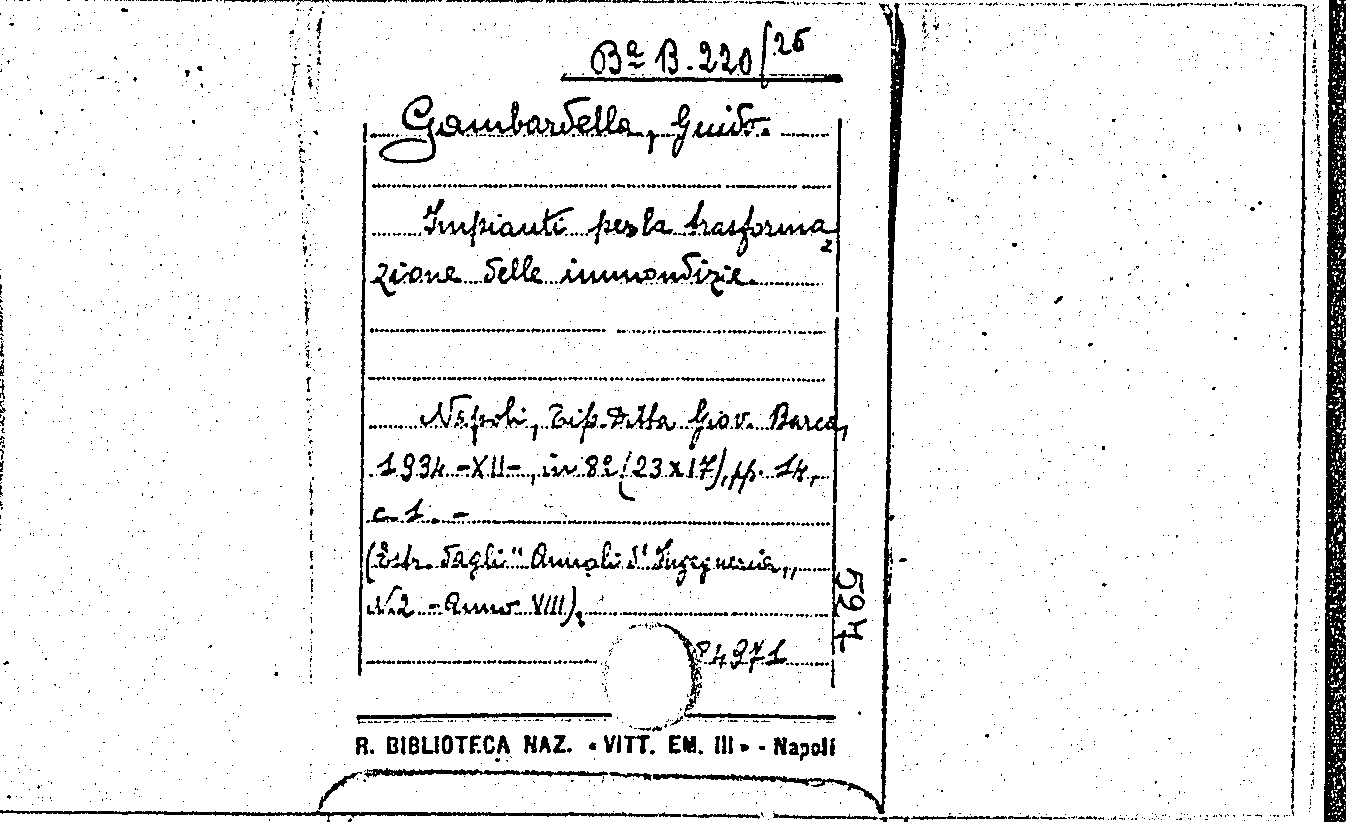 Bª B. 220/26
Gambardella, Guido.
Impianti per la trasforma
zione delle immondizie.
Napoli, Tip. Ditta Giov. Barca,
1934 -XII-, in 8º (23x17), pp. 14,
c. 1. -
(Estr. dagli "Annali d'Ingegneria",
N.2 - Anno VIII).
84971
594
R. BIBLIOTECA NAZ. « VITT. EM. III » - Napoli